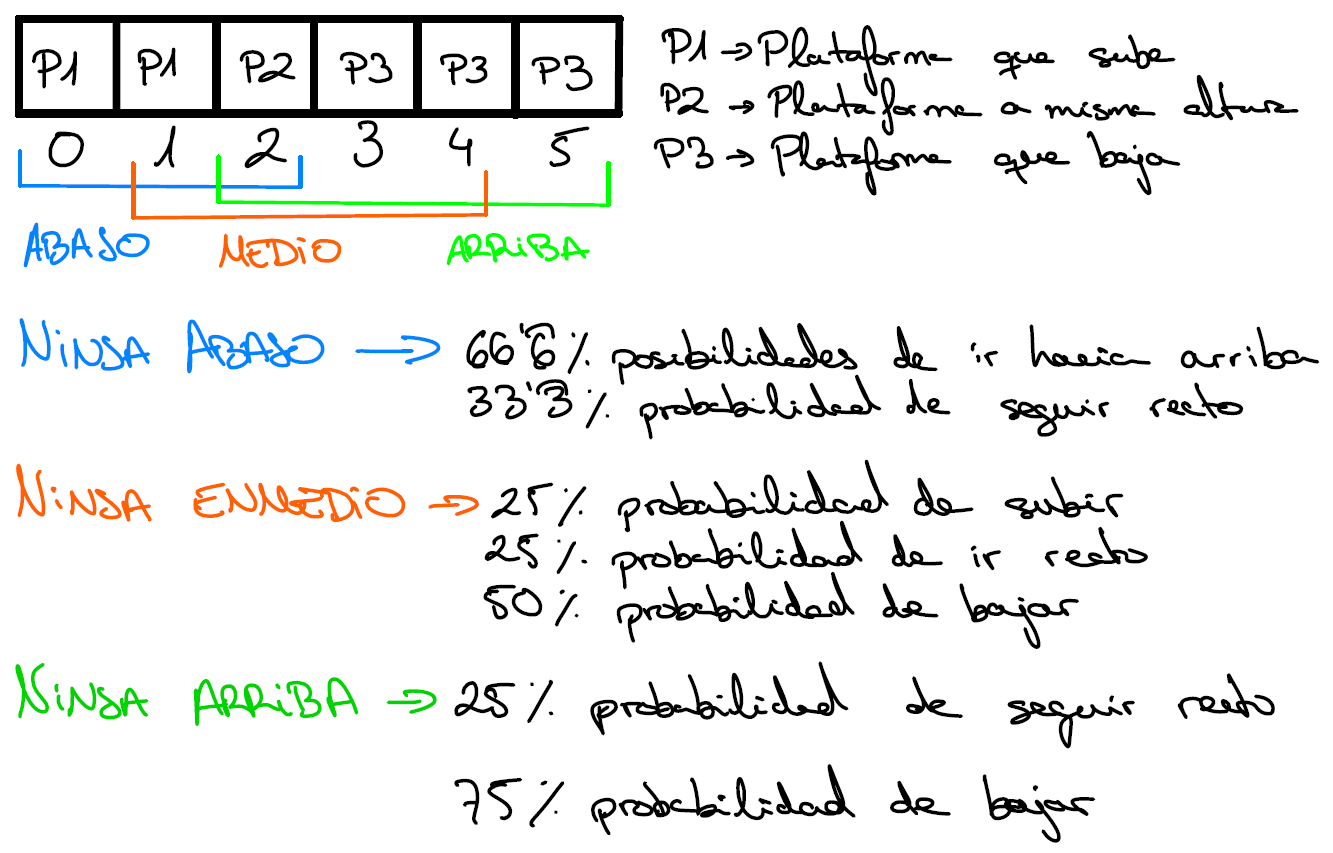 P1 P1 P2 P3 P3 P3
0 1 2 3 4 5
ABAJO MEDIO ARRIBA
P1 → Plataforma que sube
P2 → Plataforma a misma altura
P3 → Plataforma que baja
NINJA ABAJO → 66'6% posibilidades de ir hacia arriba
33'3% probabilidad de seguir recto
NINJA ENMEDIO → 25% probabilidad de subir
25% probabilidad de ir recto
50% probabilidad de bajar
NINJA ARRIBA → 25% probabilidad de seguir recto
75% probabilidad de bajar